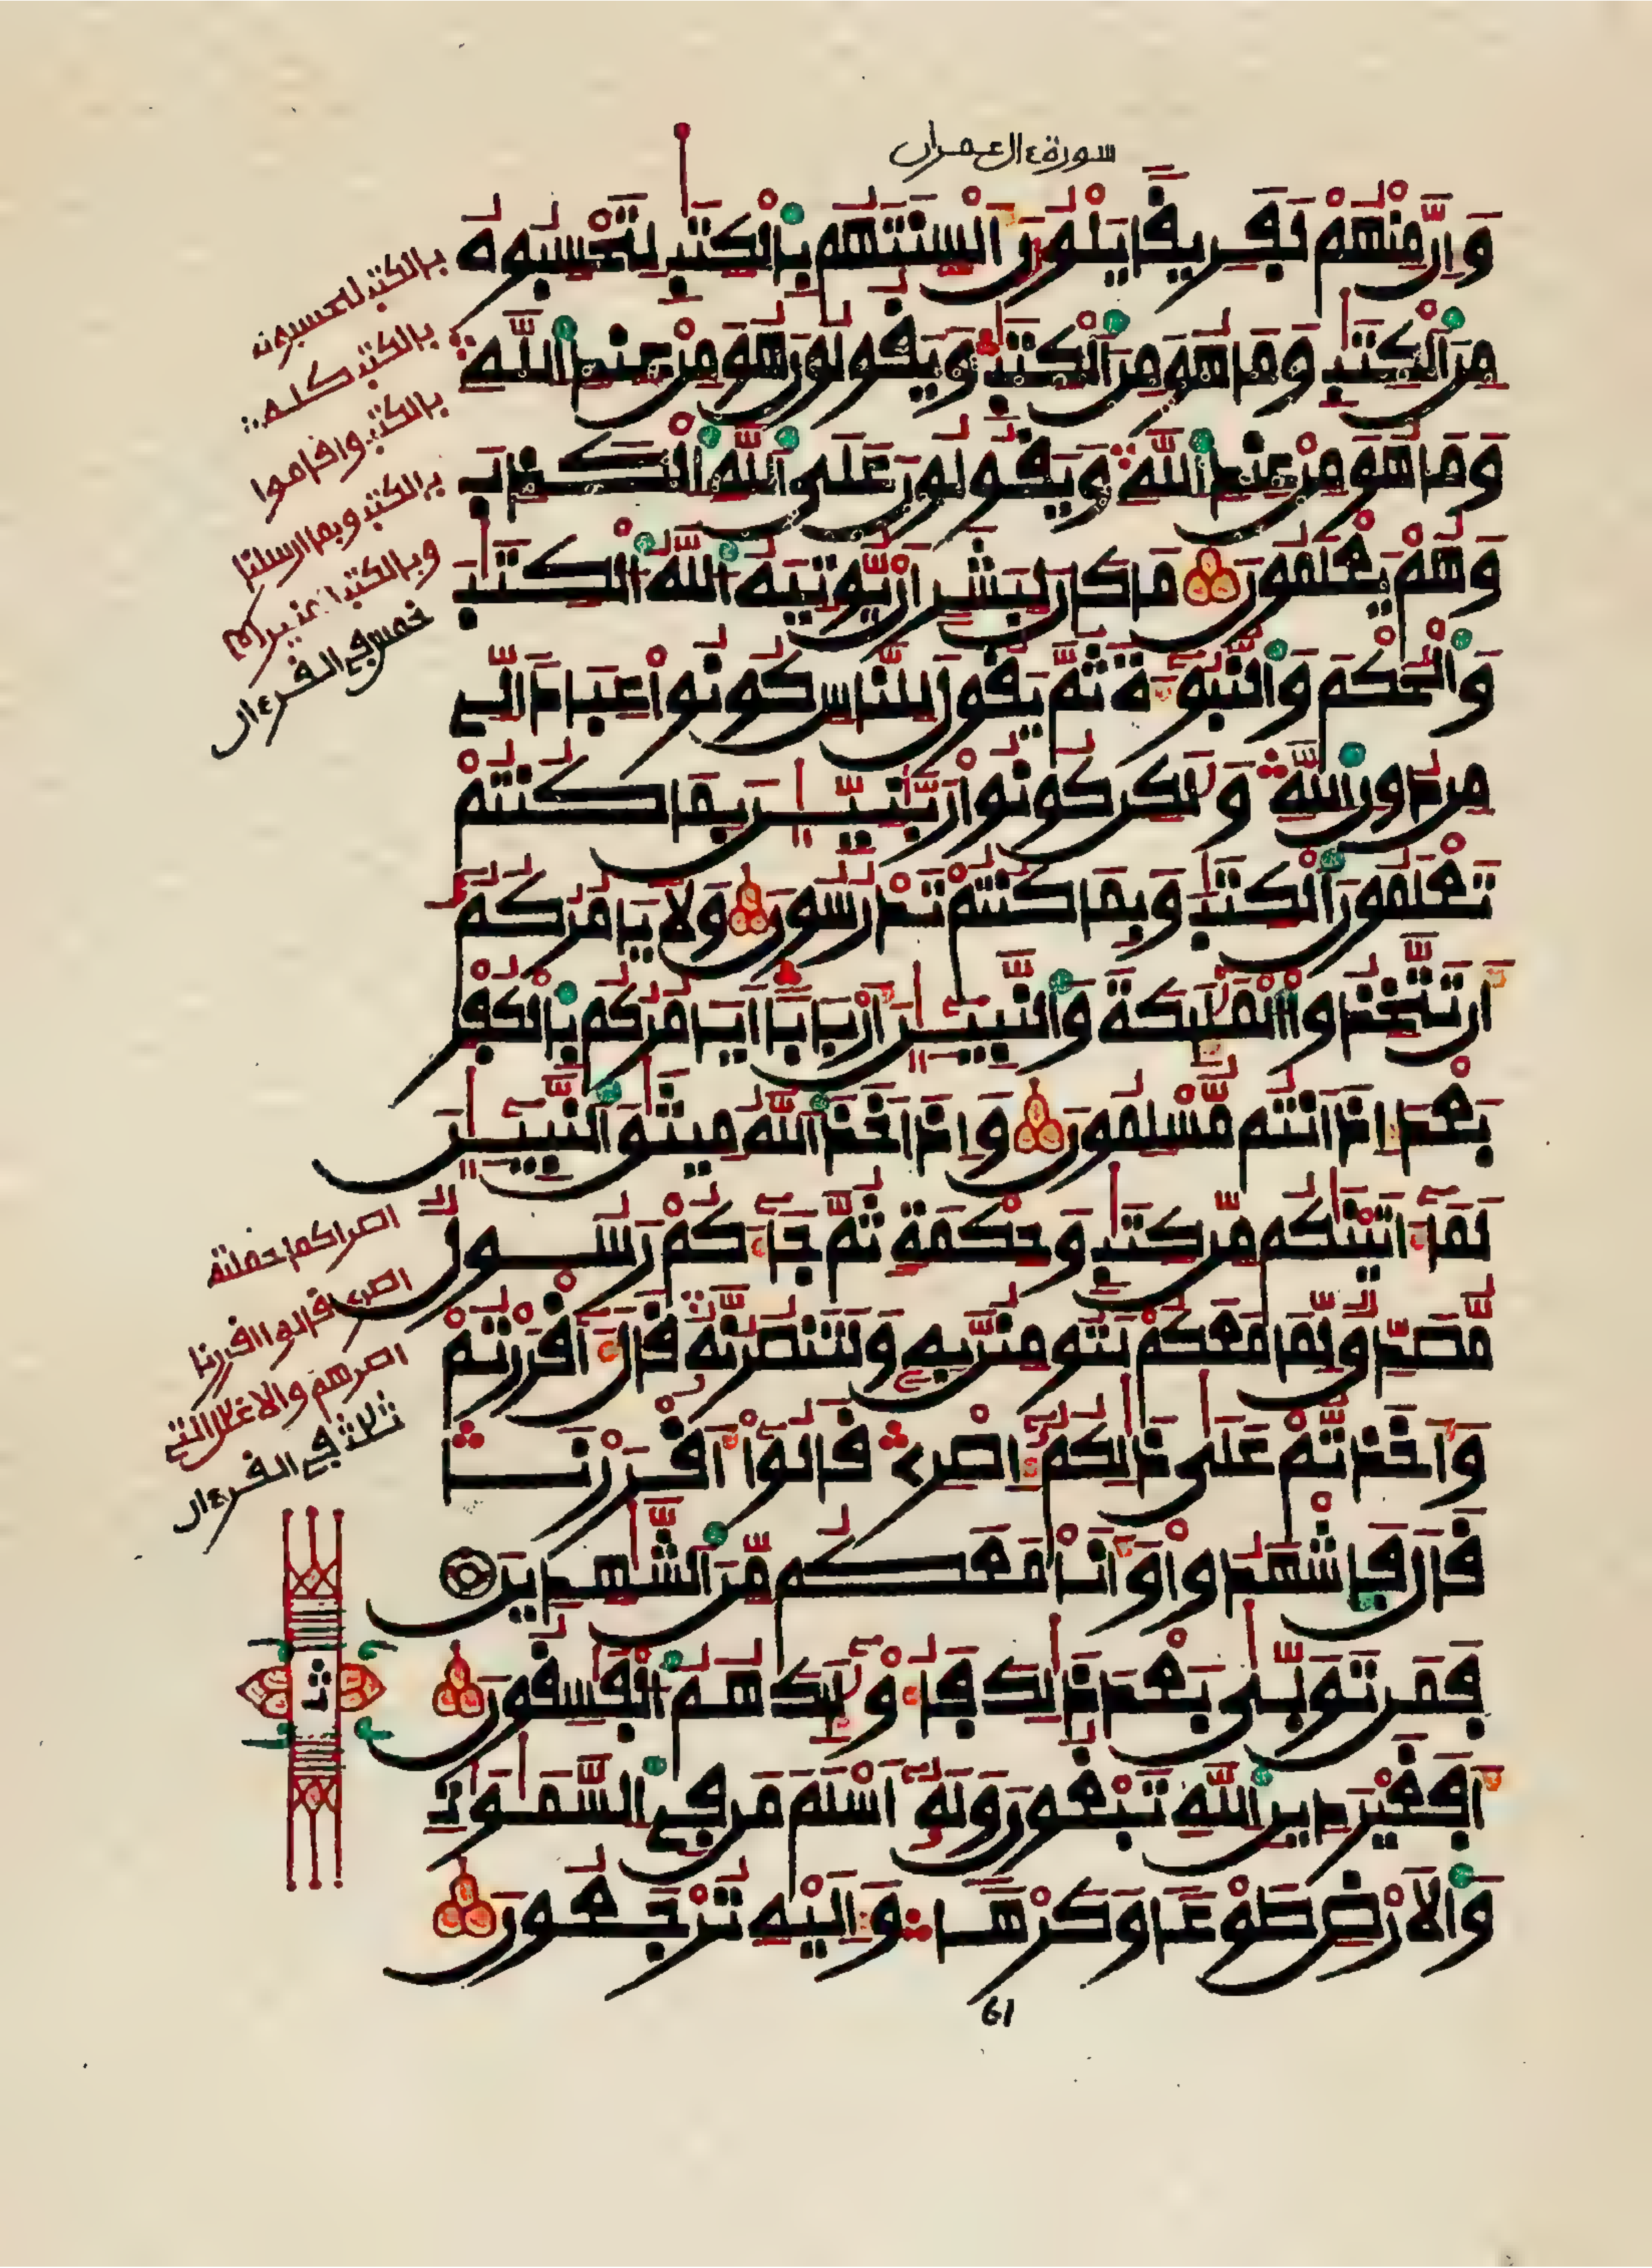 سورة ءال عمران
وان منهم لفريقا يلون ألسنتهم بالكتب لتحسبوه
من الكتب وما هو من الكتب ويقولون هو من عند الله
وما هو من عند الله ويقولون على الله الكذب
وهم يعلمون ما كان لبشر ان يوتيه الله الكتب
والحكم والنبوءة ثم يقول للناس كونوا عبادا لي
من دون الله ولكن كونوا ربنيين بما كنتم
تعلمون الكتب وبما كنتم تدرسون ولا يامركم
أن تتخذوا الملئكة والنبيـين أربابا ايامركم بالكفر
بعد إذ انتم مسلمون وإذ اخذ الله ميثق النبيـين
لما ءاتينكم من كتب وحكمة ثم جاءكم رسول
مصدق لما معكم لتومنن به ولتنصرنه قال ءأقررتم
وأخذتم على ذلكم إصري قالوا أقررنا
قال فاشهدوا وأنا معكم من الشهدين
فمن تولى بعد ذلك فأولئك هم الفسقون
أفغير دين الله تبغون وله أسلم من في السموت
والارض طوعا وكرها وإليه ترجعون
بالكتب لتحسبوه
بالكتب كله
بالكتب واقاموا
بالكتب وبما ارسلنا
وبالكتب المنير
خمس في القرءان
اصرا كما حملته
اصري قالوا اقررنا
اصرهم والاغلل التي
ثلث في القرءان
61